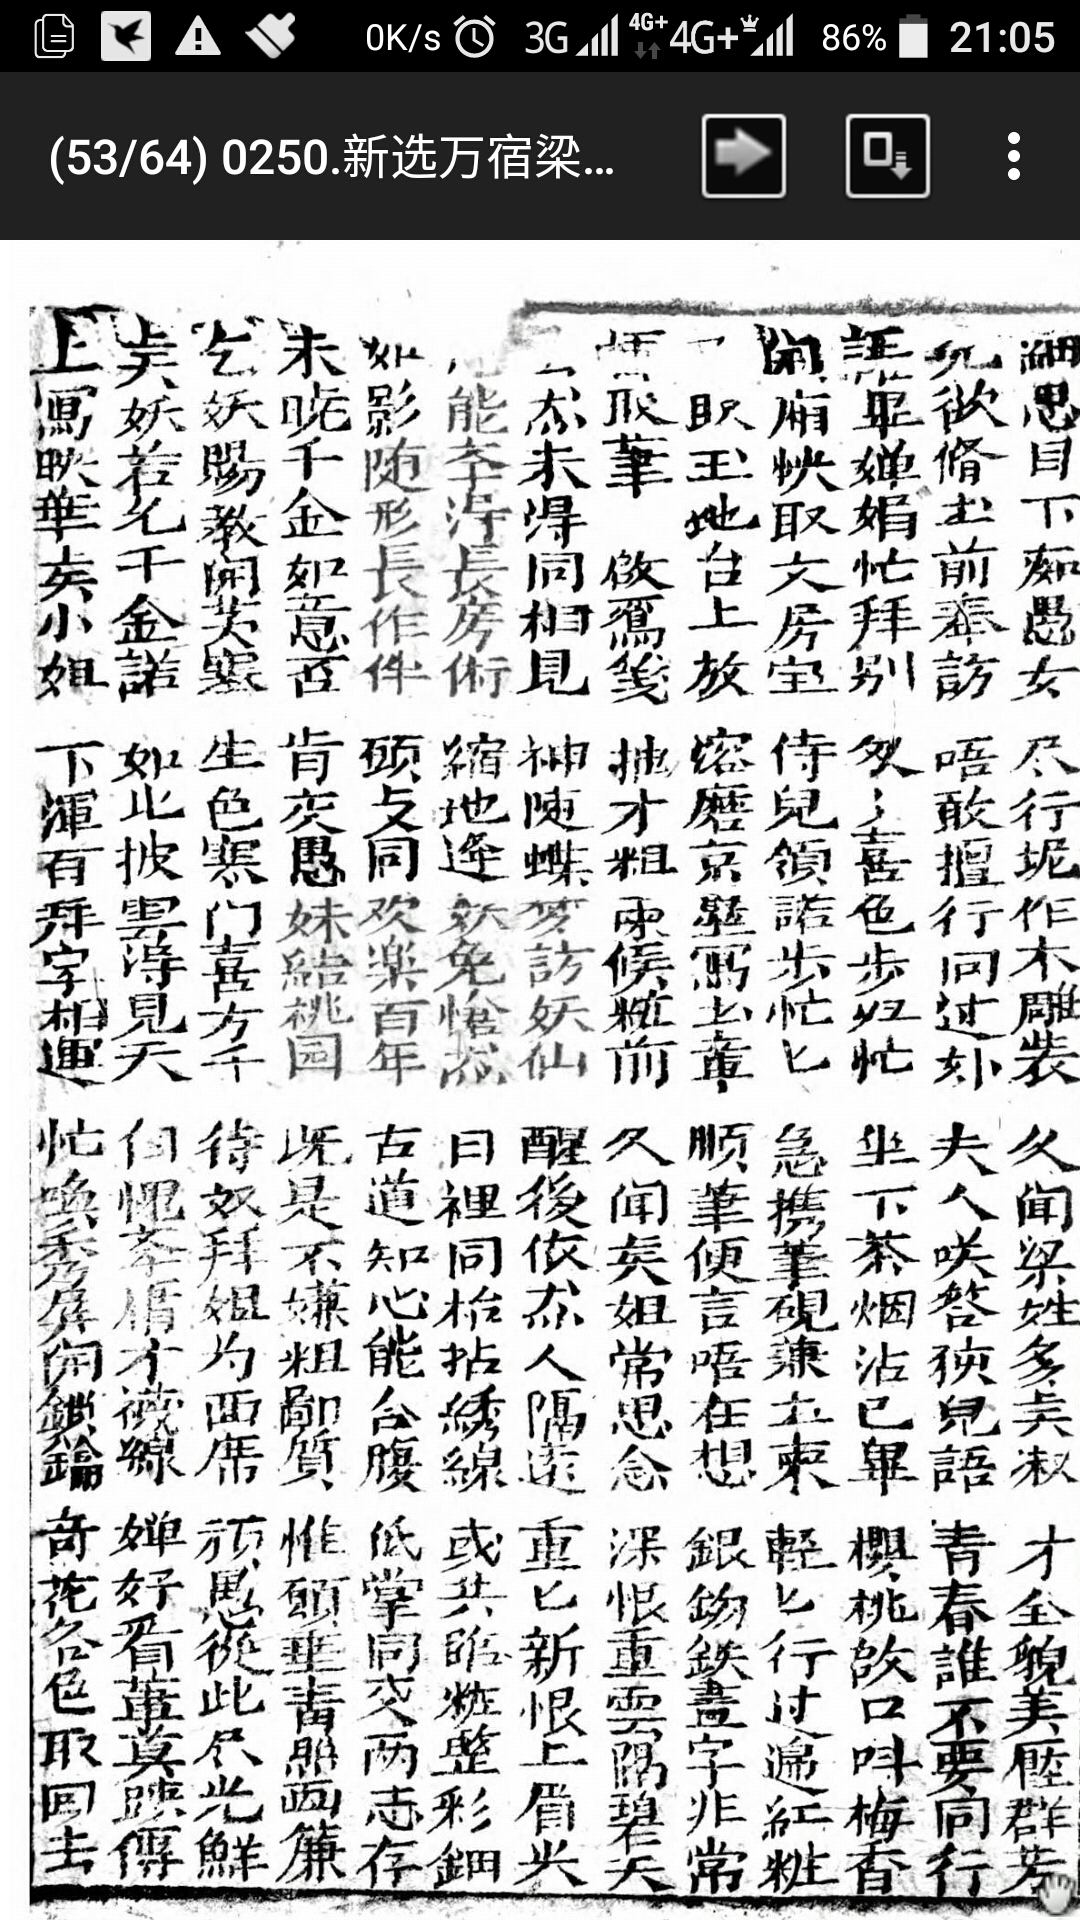 0K/s 3G 4G+ 4G+ 86% 21:05
(53/64) 0250.新选万宿梁...
細思目下痴愚女 尽行坭作木雕裝 久闻梁姓多矣淑 才全貌美压群芳
欲脩玉前奉訪 唔敢擅行问过 夫人咲答狹兒語 青春誰不要同行
單婵娟忙拜别 奴〻喜色步归忙 坐下茶烟沾已畢 櫻桃啟口呌梅香
開廂快取文房宝 侍兒領諾步忙匕 急携筆硯兼玉柬 輕匕行过遞紅粧
取玉地台上放 熔磨京墨寫玉章 順筆便言唔在想 銀鈎鉄畫字非常
取筆 啟鴬笺 抽才粗两候粧前 久闻矣姐常思念 深恨重雲隔碧天
忝未得同相見 神随蝶梦訪妖仙 醒後依忝人隔远 重匕新恨上眉尖
能李得長房術 縮地逢妖免愴忝 日裡同枱拈綉線 或共临粧整彩鈿
如影随形長作伴 頭交同欢楽百年 古道知心能合腹 低掌同交两志存
未晓千金如意否 肯交愚妹結桃园 既是不嫌粗鄙質 惟願垂青照西簾
乞妖賜教開茅塞 生色寒门喜万千 待奴拜姐为西席 顽愚從此尽光鮮
矣妖若允千金諾 如此披雲得見天 但愧李 才襪線 婵好看 莫 傳
上寫映華矣小姐 下渾有拜字相連 忙唤秀屏開鎖鑰 奇花各色取回去